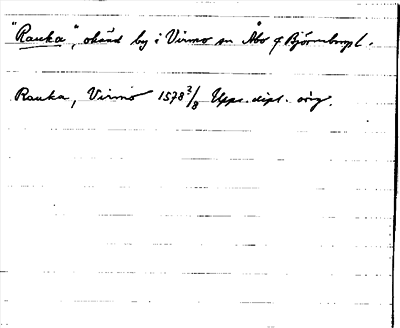 "Rauka", okänd by i Virmo sn Åbo o Björneborgs l.
Rauka, Virmo 1578 2/8 Upps. dipl. orig.